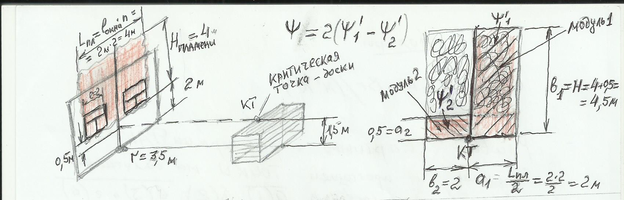 Lпл = bокна · n =
= 2м · 2 = 4м
H пламени = 4м
2м
0,5м
r = 3,5м
КРИТИЧЕСКАЯ
точка - доски
КТ
1,5м
Ψ = 2(Ψ₁' - Ψ₂')
Ψ₁'
модуль 1
модуль 2
Ψ₂'
b₁ = H = 4+0,5 =
= 4,5м
0,5 = a₂
КТ
b₂ = 2
a₁ = Lпл/2 = 2·2/2 = 2м